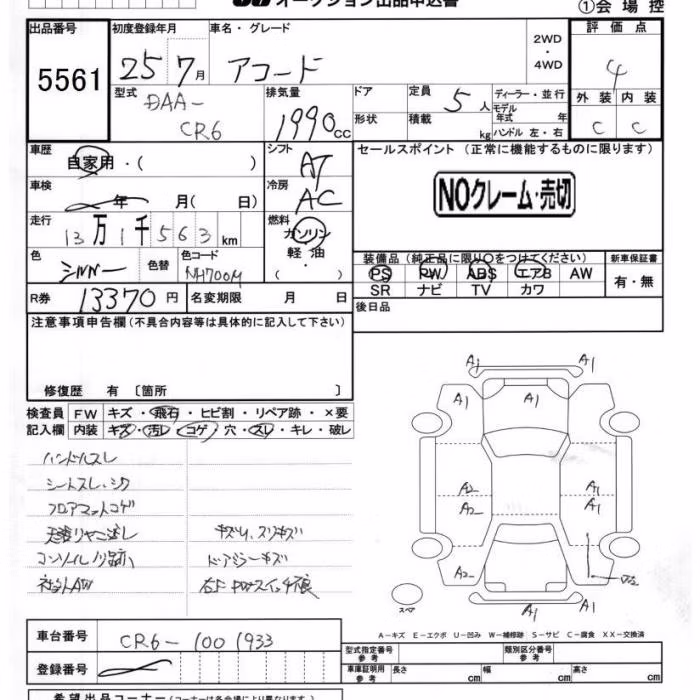 オークション出品申込書
①会場控
出品番号 初度登録年月 車名・グレード 評価点
5561 25 7月 アコード 2WD ・ 4WD 4
型式 排気量 ドア 定員 5人 ディーラー・並行 外装 内装
DAA- モデル
CR6 1990cc 形状 積載 kg 年式 年 ハンドル 左・右 C C
車歴 シフト セールスポイント (正常に機能するものに限ります)
自家用・( ) AT
NOクレーム・売切
車検 年 月( 日) 冷房 AC
走行 13万1千563km 燃料 ガソリン
軽油・( )
色 色替 色コード 装備品 (純正品に限り○をつけてください) 新車保証書
シルバー NH700M PS PW ABS エアB AW 有・無
SR ナビ TV カワ
R券 13370円 名変期限 月 日 後日品
注意事項申告欄(不具合内容等は具体的に記入して下さい)
修復歴 有 〔箇所 〕
検査員 FW キズ・飛石・ヒビ割・リペア跡・×要
記入欄 内装 キズ・汚レ・コゲ・穴・スレ・キレ・破レ
ハンドルスレ
シートスレ・シワ
フロアマットコゲ
キズW、スリキズ
ドアミラーキズ
社外AW
A1 A1
A1 A1 A1
A2 A1
A2 A1
A2
A1 A1
スペア
A-キズ E-エクボ U-凹み W-補修跡 S-サビ C-腐食 XX-交換済
車台番号 CR6-1001933
登録番号
型式指定番号 参考 類別区分番号 参考
車庫証明用 参考 長さ cm 幅 cm 高さ cm
希望出品コーナー(コーナーは各会場により異なります)